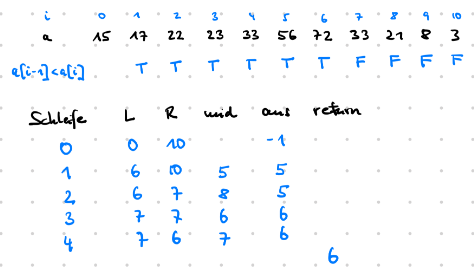 i 0 1 2 3 4 5 6 7 8 9 10
a 15 17 22 23 33 56 72 33 21 8 3
a[i-1]<a[i] T T T T T T F F F F
Schleife L R mid ans return
0 0 10 -1
1 6 10 5 5
2 6 7 8 5
3 7 7 6 6
4 7 6 7 6
6